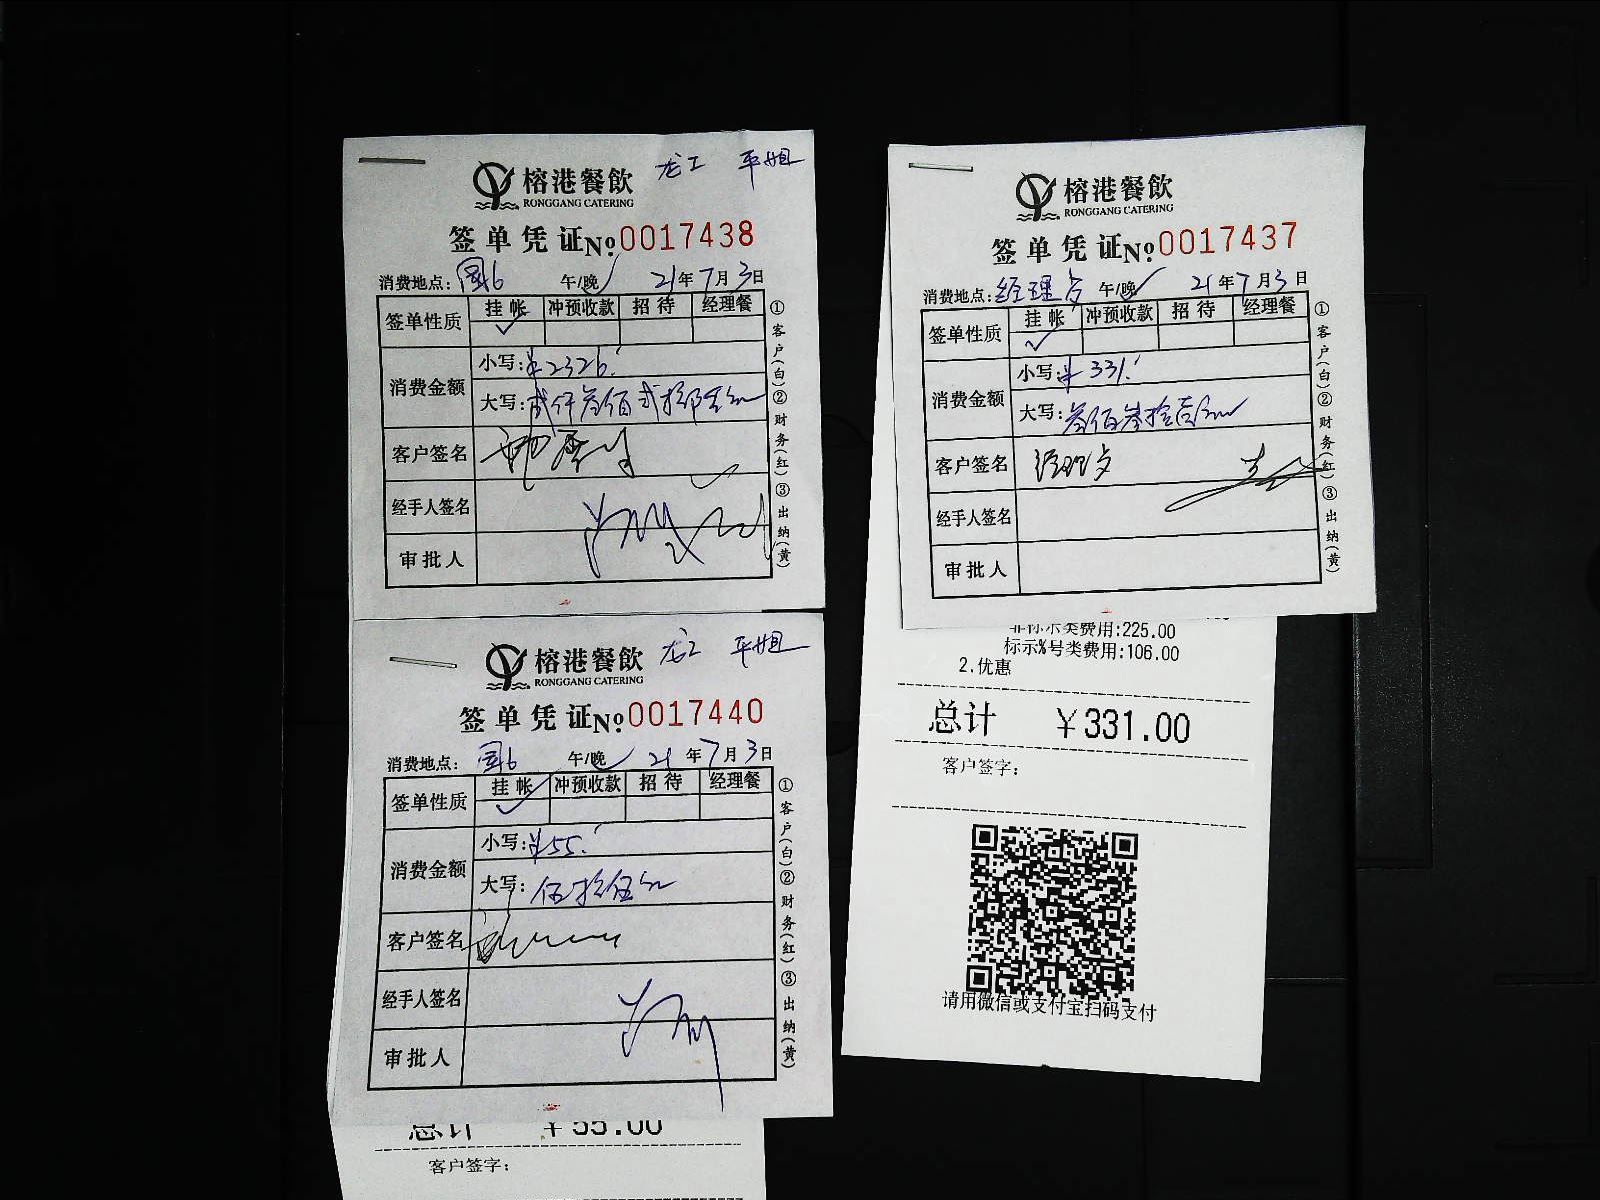 龙工 平姐
榕港餐飲
RONGGANG CATERING
签单凭证No.0017438
消费地点: 国6 午/晚 21年7月3日
签单性质 挂帐 冲预收款 招待 经理餐
✓
消费金额
小写:¥2326.
大写:贰仟叁佰贰拾陆元
客户签名
经手人签名
审批人
①客户(白)②财务(红)③出纳(黄)
龙工 平姐
榕港餐飲
RONGGANG CATERING
签单凭证No.0017440
消费地点: 国6 午/晚 21年7月3日
签单性质 挂帐 冲预收款 招待 经理餐
✓
消费金额
小写:¥55.
大写:伍拾伍元
客户签名
经手人签名
审批人
①客户(白)②财务(红)③出纳(黄)
总计 ¥55.00
客户签字:
榕港餐飲
RONGGANG CATERING
签单凭证No.0017437
消费地点:经理房 午/晚 21年7月3日
签单性质 挂帐 冲预收款 招待 经理餐
✓
消费金额
小写:¥331.
大写:叁佰叁拾壹元
客户签名
经手人签名
审批人
①客户(白)②财务(红)③出纳(黄)
非标示类费用:225.00
标示%号类费用:106.00
2.优惠
总计 ¥331.00
客户签字:
请用微信或支付宝扫码支付